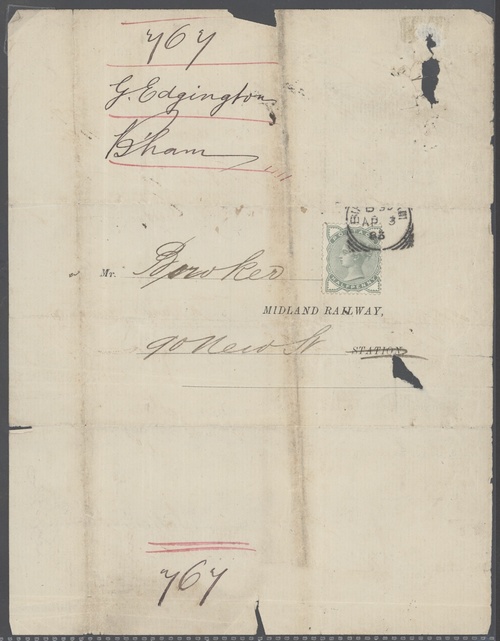 767
G. Edgington
B'ham
AP 3
83
Mr. Bowker
HALFPENNY
MIDLAND RAILWAY,
90 New St STATION
767